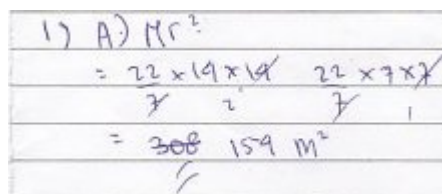 1) A) Πr²
= 22/7 × 14 × 14 22/7 × 7 × 7
2 1
= 308 154 m²